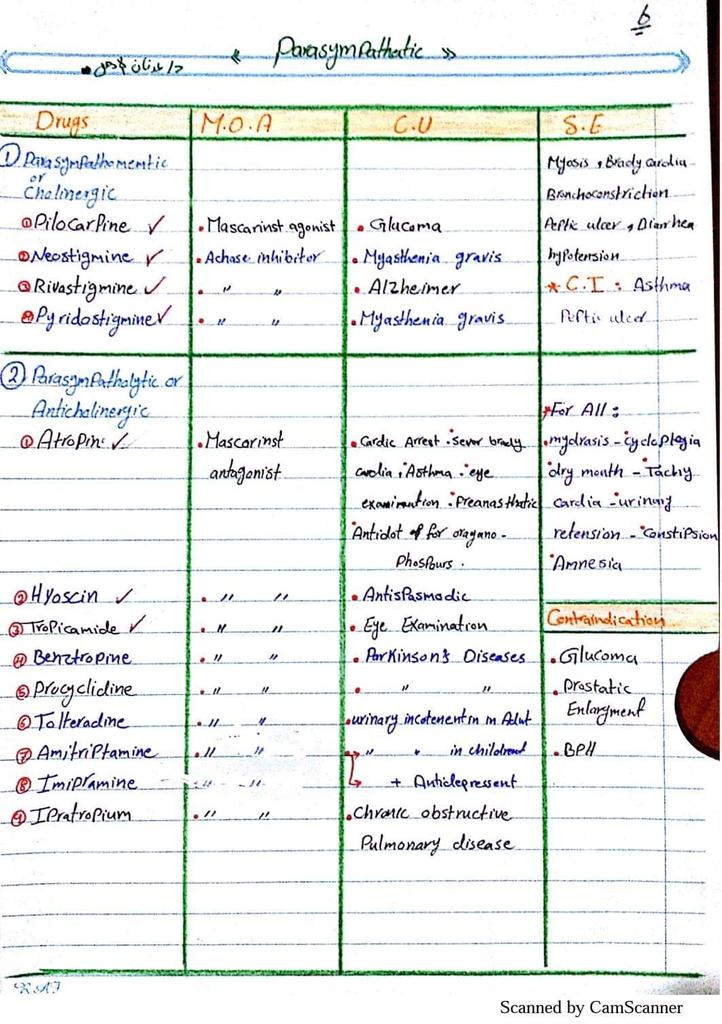 6
« Parasympathatic »
Drugs M.O.A C.U S.E
① Parasympathomemtic
or
Cholinergic
① Pilocarpine ✓ • Mascarinst agonist • Glucoma
② Neostigmine ✓ • Achase inhibitor • Myasthenia gravis
③ Rivastigmine ✓ • " " • Alzheimer
④ Pyridostigmine ✓ • " " • Myasthenia gravis
Myosis , Brady cardia
Bronchoconstriction
Peptic ulcer , Diarrhea
hypotension
* C.I : Asthma
Peptic ulcer
② Parasympatholytic or
Anticholinergic
① Atropine ✓ • Mascorinst
antagonist
• Cardic Arrest • Sever brady
cardia , Asthma • eye
examination • Preanasthatic
Antidot of for oragano -
Phospours .
*For All :
• mydrasis - cycloplegia
dry mouth - Tachy
cardia - urinary
retension - Constipsion
Amnesia
② Hyoscin ✓ • " " • Antispasmodic
③ Tropicamide ✓ • " " • Eye Examination
④ Benztropine • " " • Parkinson's Diseases
⑤ Procyclidine • " " • " "
⑥ Tolteradine • " " • urinary incotenentin in Adult
⑦ Amitriptamine • " " " " in childrend
⑧ Imipramine " " + Antidepressent
⑨ Ipratropium • " " • Chronic obstructive
Pulmonary disease
Contraindication
• Glucoma
• Prostatic
Enlargment
• BPH
Scanned by CamScanner